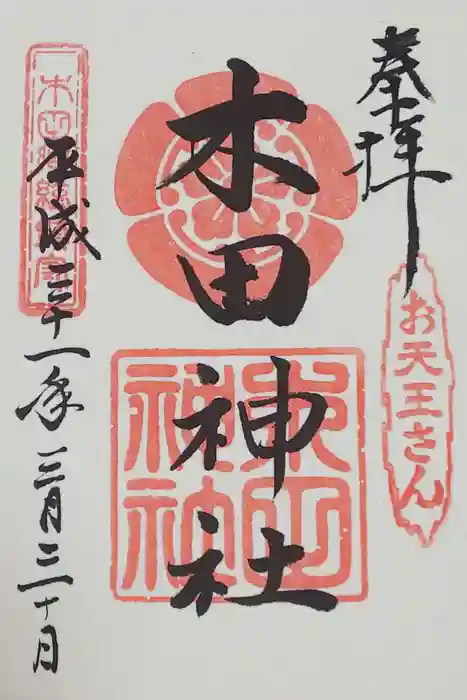 奉拝
お天王さん
木田神社
神社
平成三十一年三月三十日
木田